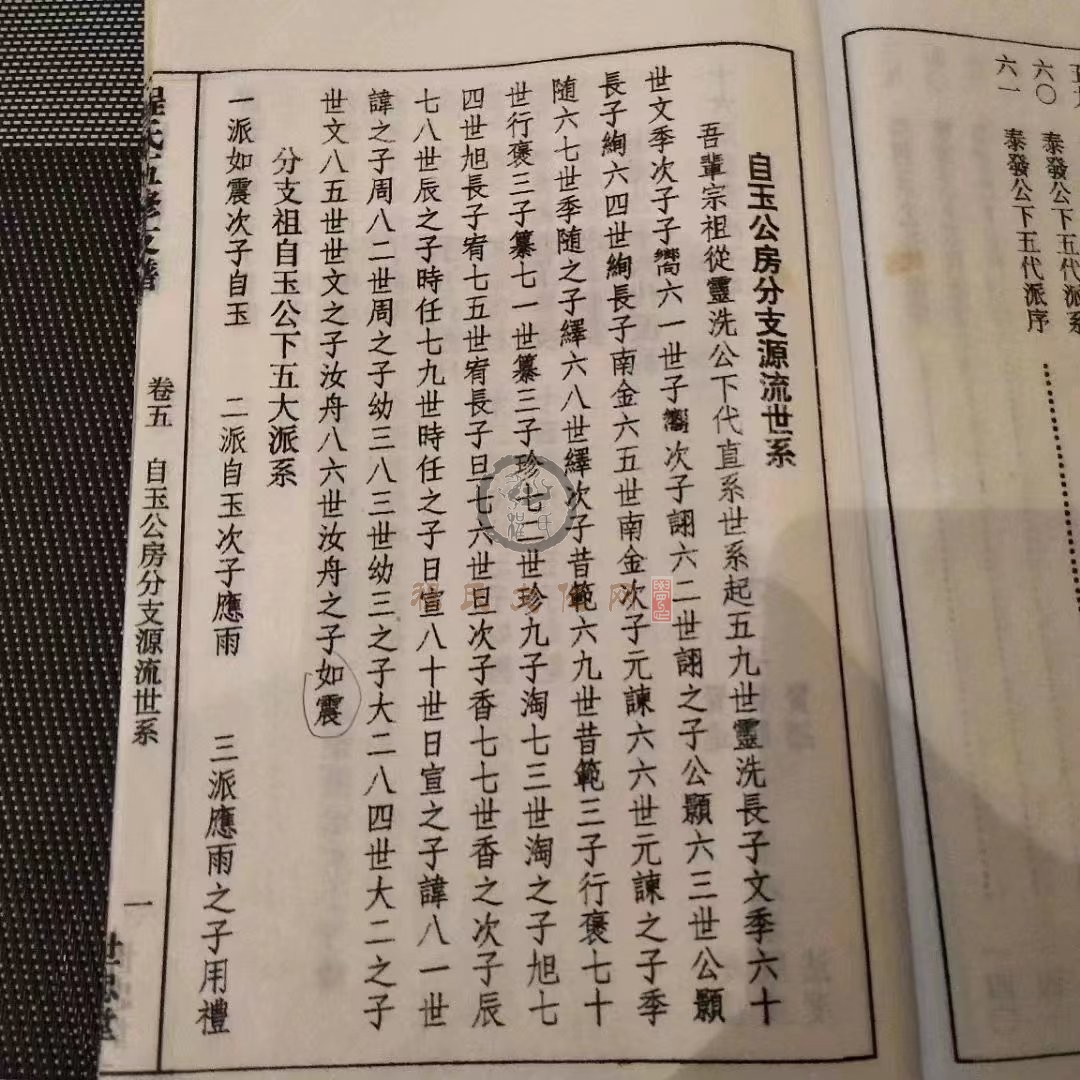 六〇 泰發公下五代派系
六一 泰發公下五代派序
自玉公房分支源流世系
吾輩宗祖從靈洗公下代直系世系起五九世靈洗長子文季六十
世文季次子子嚮六一世子嚮次子詡六二世詡之子公顥六三世公顥
長子絢六四世絢長子南金六五世南金次子元諫六六世元諫之子季
隨六七世季隨之子繹六八世繹次子昔範六九世昔範三子行褒七十
世行褒三子纂七一世纂三子珍七二世珍九子淘七三世淘之子旭七
四世旭長子宥七五世宥長子旦七六世旦次子香七七世香之次子辰
七八世辰之子時任七九世時任之子日宣八十世日宣之子諱八一世
諱之子周八二世周之子幼三八三世幼三之子大二八四世大二之子
世文八五世世文之子汝舟八六世汝舟之子如震
分支祖自玉公下五大派系
一派如震次子自玉 二派自玉次子應雨 三派應雨之子用禮
程氏五修支譜 卷五 自玉公房分支源流世系 一 世忠堂
程氏文化网